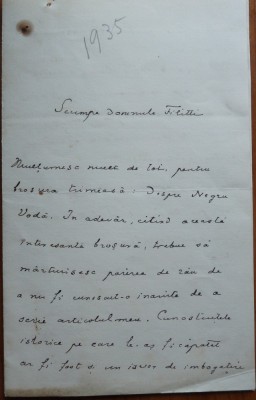 1935
Scumpe Domnule Filitti
Mulțumesc mult de tot, pentru
broșura trimeasă: Despre Negru
Vodă. In adevăr, citind această
interesantă broșură, trebue să
mărturisesc părerea de rău de
a nu fi cunoscut-o inainte de a
scrie articolul meu. Cunostintele
istorice pe care le-aș fi căpătat
ar fi fost și un isvor de imbogațire